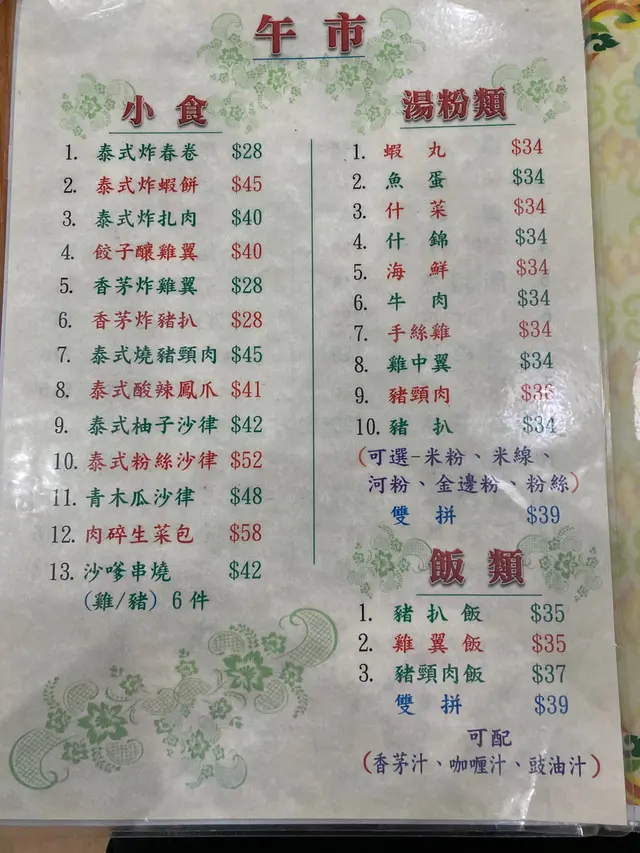 午市
小食
1. 泰式炸春卷 $28
2. 泰式炸蝦餅 $45
3. 泰式炸扎肉 $40
4. 餃子釀雞翼 $40
5. 香茅炸雞翼 $28
6. 香茅炸豬扒 $28
7. 泰式燒豬頸肉 $45
8. 泰式酸辣鳳爪 $41
9. 泰式柚子沙律 $42
10. 泰式粉絲沙律 $52
11. 青木瓜沙律 $48
12. 肉碎生菜包 $58
13. 沙嗲串燒 $42
(雞/豬) 6 件
湯粉類
1. 蝦丸 $34
2. 魚蛋 $34
3. 什菜 $34
4. 什錦 $34
5. 海鮮 $34
6. 牛肉 $34
7. 手絲雞 $34
8. 雞中翼 $34
9. 豬頸肉
10. 豬扒 $34
(可選-米粉、米線、
河粉、金邊粉、粉絲)
雙拼 $39
飯類
1. 豬扒飯 $35
2. 雞翼飯 $35
3. 豬頸肉飯 $37
雙拼 $39
可配
(香茅汁、咖喱汁、豉油汁)